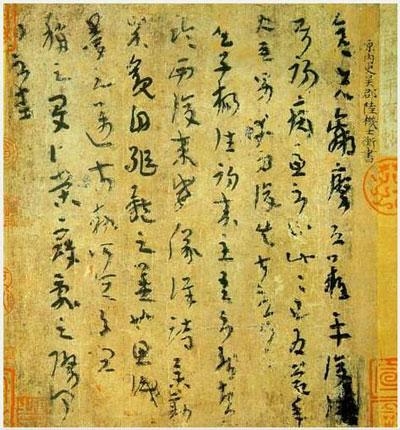 原內史吳郡陸機士衡書
彦先羸瘵恐難平復
往屬初病慮不止此此已為慶承使
唯男幸為復失前憂耳
子楊往初來主吾不能盡
臨西復來威儀詳跱舉動
成觀自軀體之美也思識
量之邁前執所恒有宜
稱之夏伯榮寇亂之際聞
問不悉